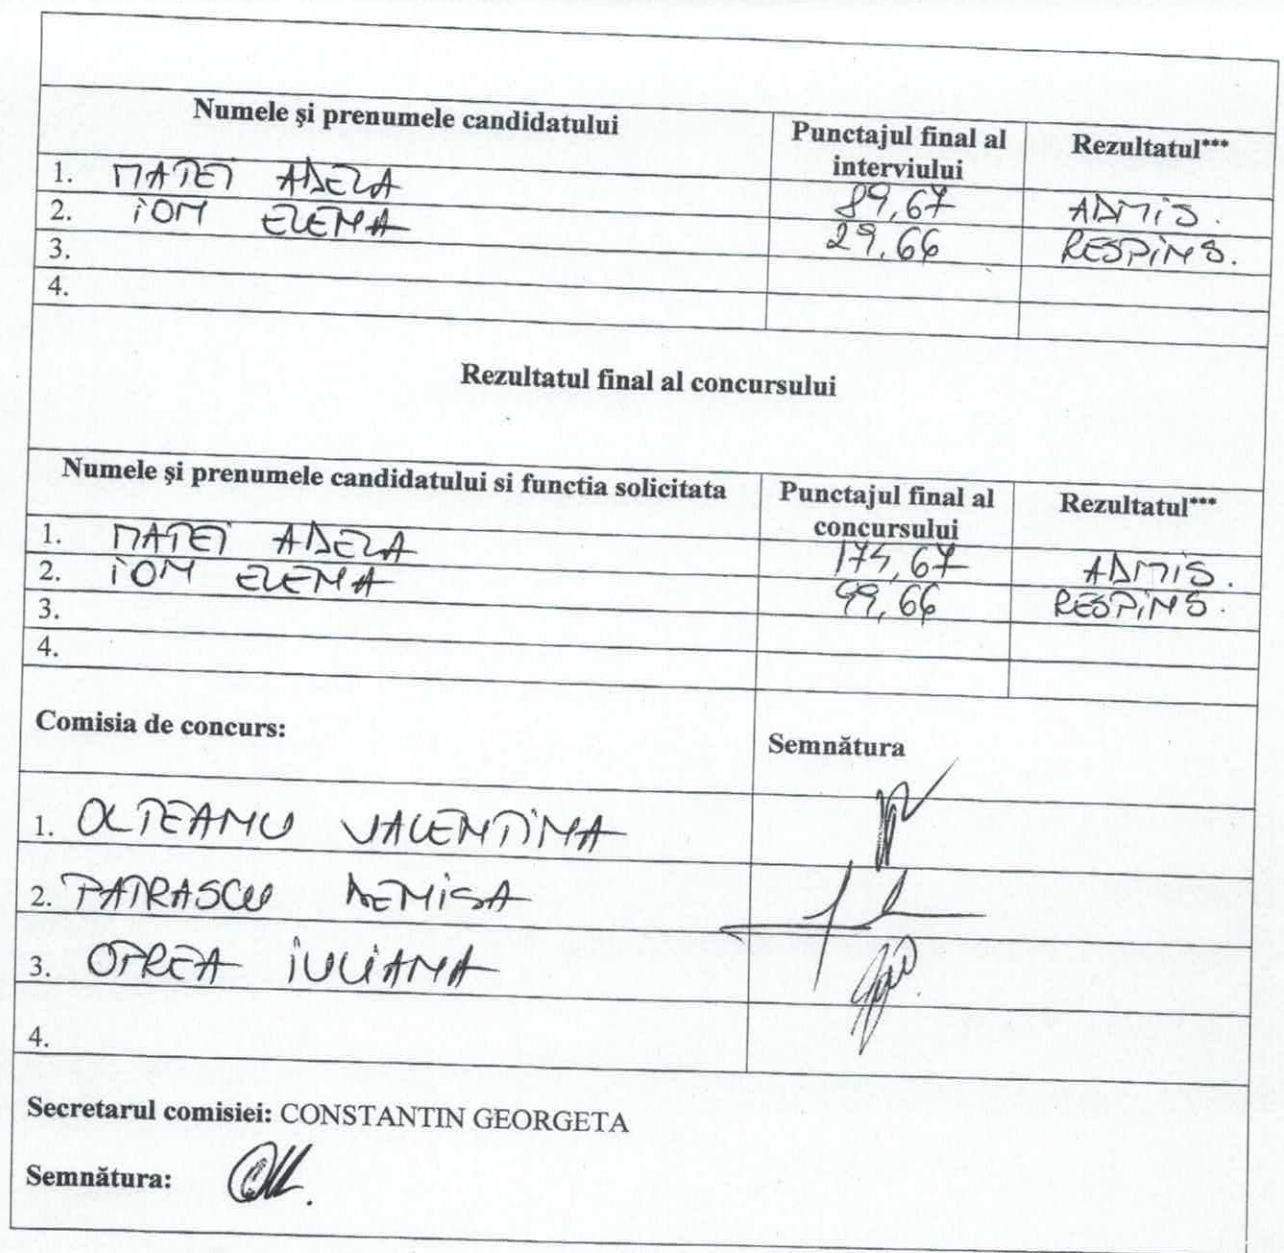 Numele și prenumele candidatului Punctajul final al interviului Rezultatul***
1. MATEI ADELA 89,67 ADMIS.
2. ION ELENA 29,66 RESPINS.
3.
4.
Rezultatul final al concursului
Numele și prenumele candidatului si functia solicitata Punctajul final al concursului Rezultatul***
1. MATEI ADELA 174,67 ADMIS.
2. ION ELENA 99,66 RESPINS.
3.
4.
Comisia de concurs: Semnătura
1. OLTEANU VALENTINA
2. PATRASCU DENISA
3. OPREA IULIANA
4.
Secretarul comisiei: CONSTANTIN GEORGETA
Semnătura: